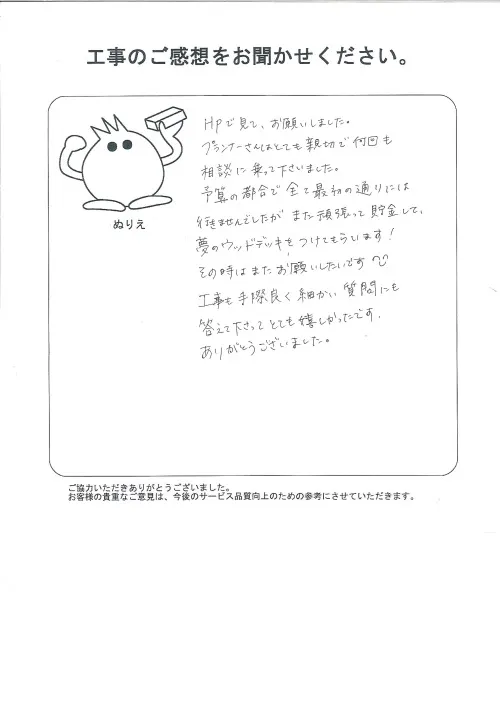 工事のご感想をお聞かせください。
HPで見て、お願いしました。
プランナーさんはとても親切で何回も
相談に乗って下さいました。
予算の都合で全て最初の通りには
行きませんでしたが また頑張って貯金して、
夢のウッドデッキをつけてもらいます!
その時はまたお願いしたいです
工事も手際良く細かい質問にも
答えて下さってとても嬉しかったです。
ありがとうございました。
ぬりえ
ご協力いただきありがとうございました。
お客様の貴重なご意見は、今後のサービス品質向上のための参考にさせていただきます。